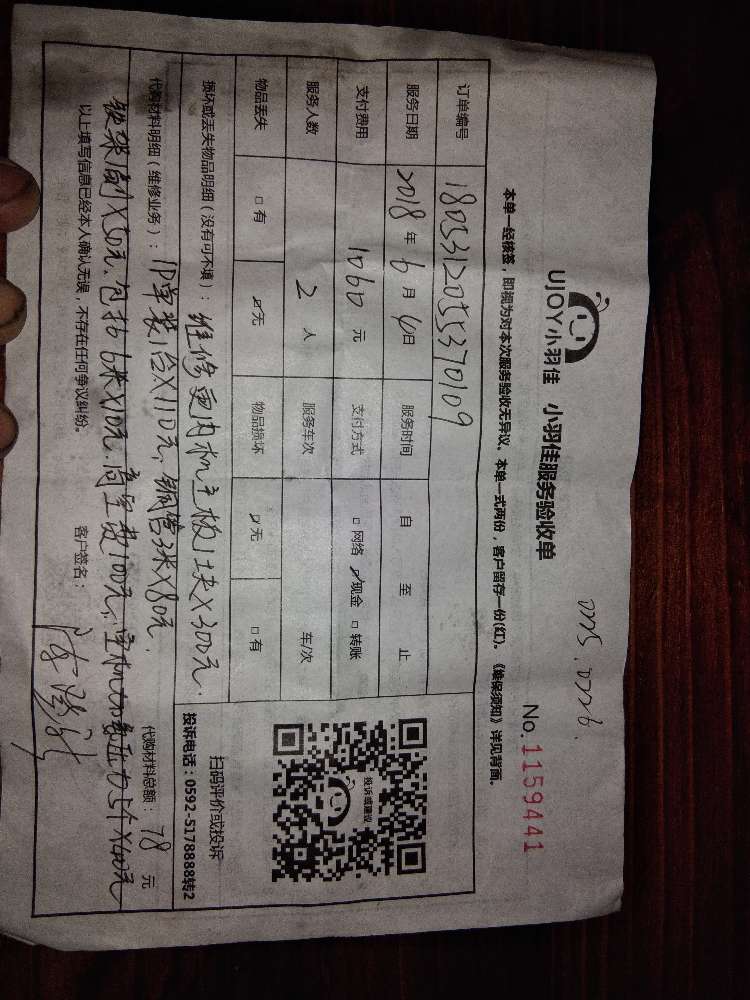 0025.0226.
UJOY小羽佳 小羽佳服务验收单
No.1159441
本单一经核签，即视为对本次服务验收无异议。本单一式两份，客户留存一份(红)。《维保须知》详见背面。
订单编号 180531205537 0109
服务日期 2018年6月6日 服务时间 自 至 止
支付费用 1060元 支付方式 □网络 ☑现金 □转账
服务人数 2人 服务车次 车/次
物品丢失 □有 ☑无 物品损坏 ☑无 □有
投诉或建议
扫码评价或投诉
投诉电话：0592-5178888转2
损坏或丢失物品明细（没有可不填）：维修更内机主板1块X300元.
代购材料明细（维修业务）：1P单装1台X110元、铜管3米X80元.
代购材料总额：78元
铁架1副X50元.包扎6米X10元.高空费100元.
以上填写信息已经本人确认无误，不存在任何争议纠纷。 客户签名：